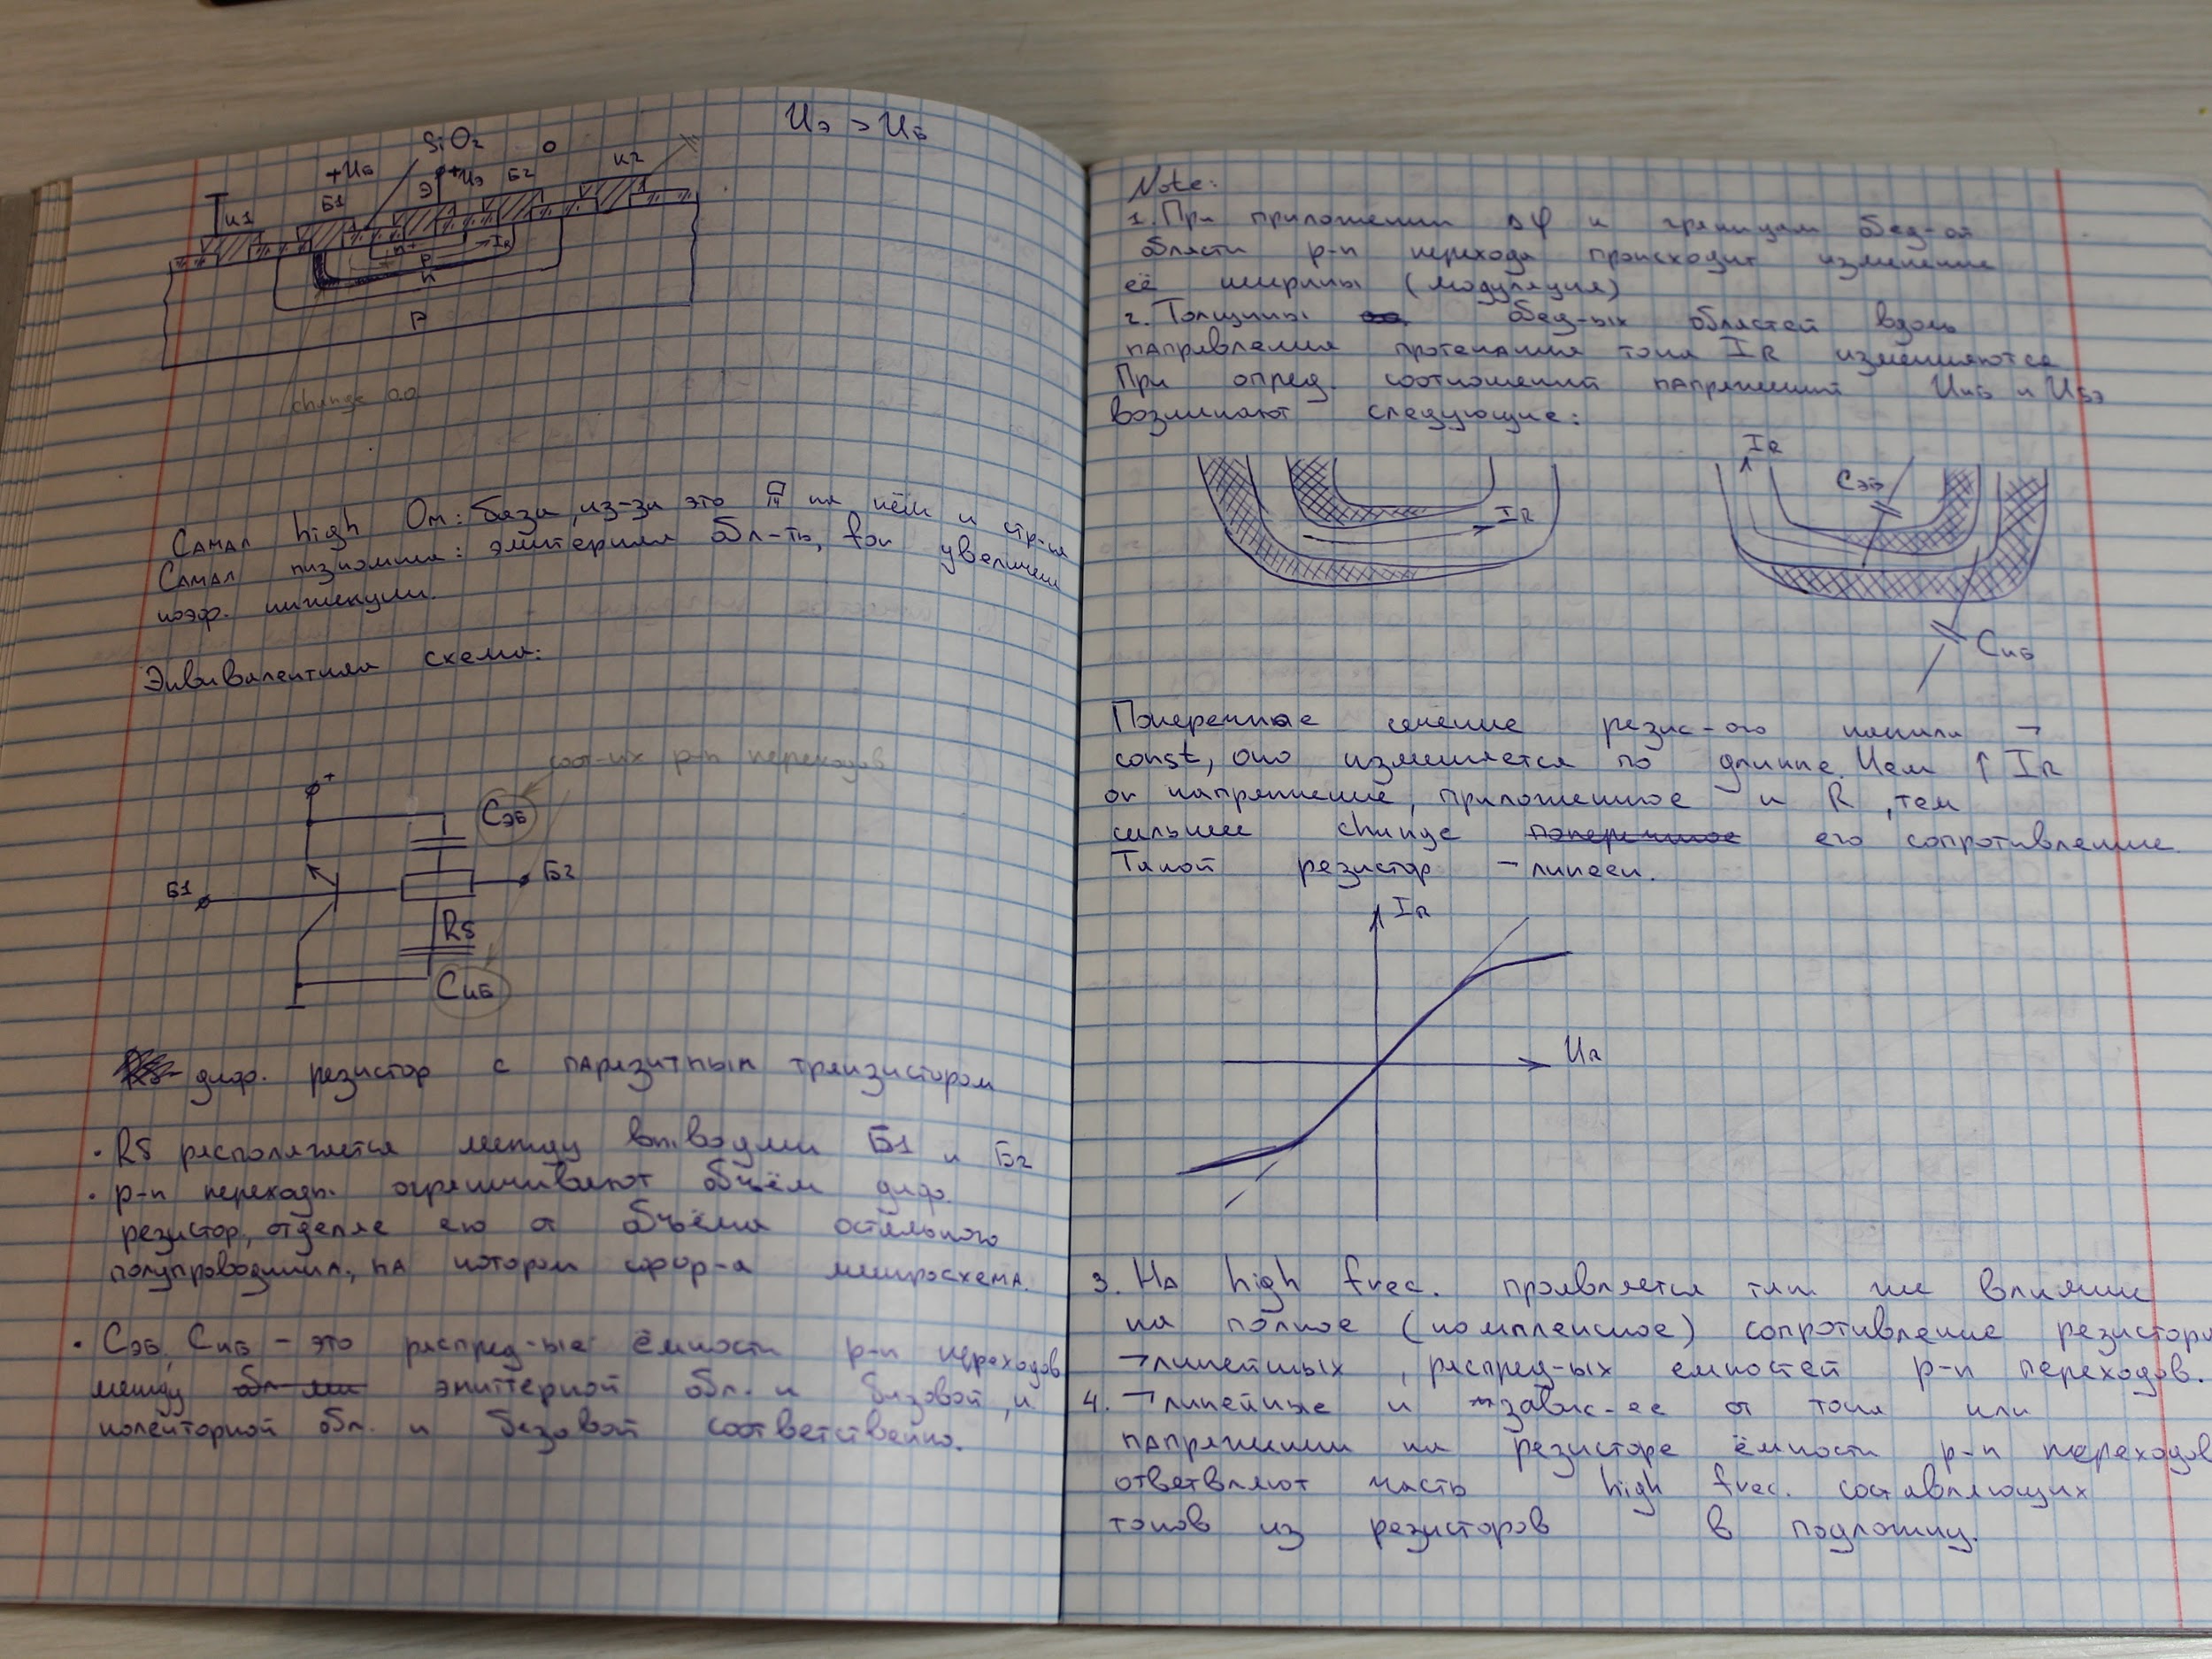 Uэ > Uб
SiO2
+Uб
+Uэ
0
к1
Б1
Э
Б2
к2
n+
IR
p
n
P
change о.о
Самая high Ом: база, из-за это на нём и стр-ся
Самая низкоомная: эмитерная обл-ть, for увеличен
коэф. инжекции.
Эквивалентная схема:
соот-их p-n переходов
+
Cэб
Б1
Б2
Rб
Cкб
диф. резистор с паразитным транзистором
· Rб располагается между выводами Б1 и Б2
· p-n переходы ограничивают объём диф.
резистор, отделяе его от объёма остального
полупроводника, на котором сфор-а микросхема.
· Cэб, Cкб - это распред-ые ёмкости p-n переходов
между эмиттерной обл. и базовой, и
колекторной обл. и базовой соответственно.
Note:
1. При приложении Δφ к границам обед-ой
области p-n перехода происходит изменение
её ширины (модуляция)
2. Толщины обед-ых областей вдоль
направления протекания тока IR изменяются
При опред. соотношений напряжений Uкб и Uбэ
возникают следующие:
IR
IR
Cэб
Cкб
Поперечное сечение резис-ого канала ¬
const, оно изменяется по длинне. Чем ↑ IR
or напряжение, приложенное к R, тем
сильнее change поперечное его сопротивление.
Такой резистор ¬ линеен.
IR
UR
3. На high frec. проявляется так же влияние
на полное (комплексное) сопротивление резистора
¬линейных, распред-ых емкостей p-n переходов.
4. ¬линейные и завис-ее от тока или
напряжении на резисторе ёмкости p-n переходов
ответвляют часть high frec. составляющих
токов из резисторов в подложку.